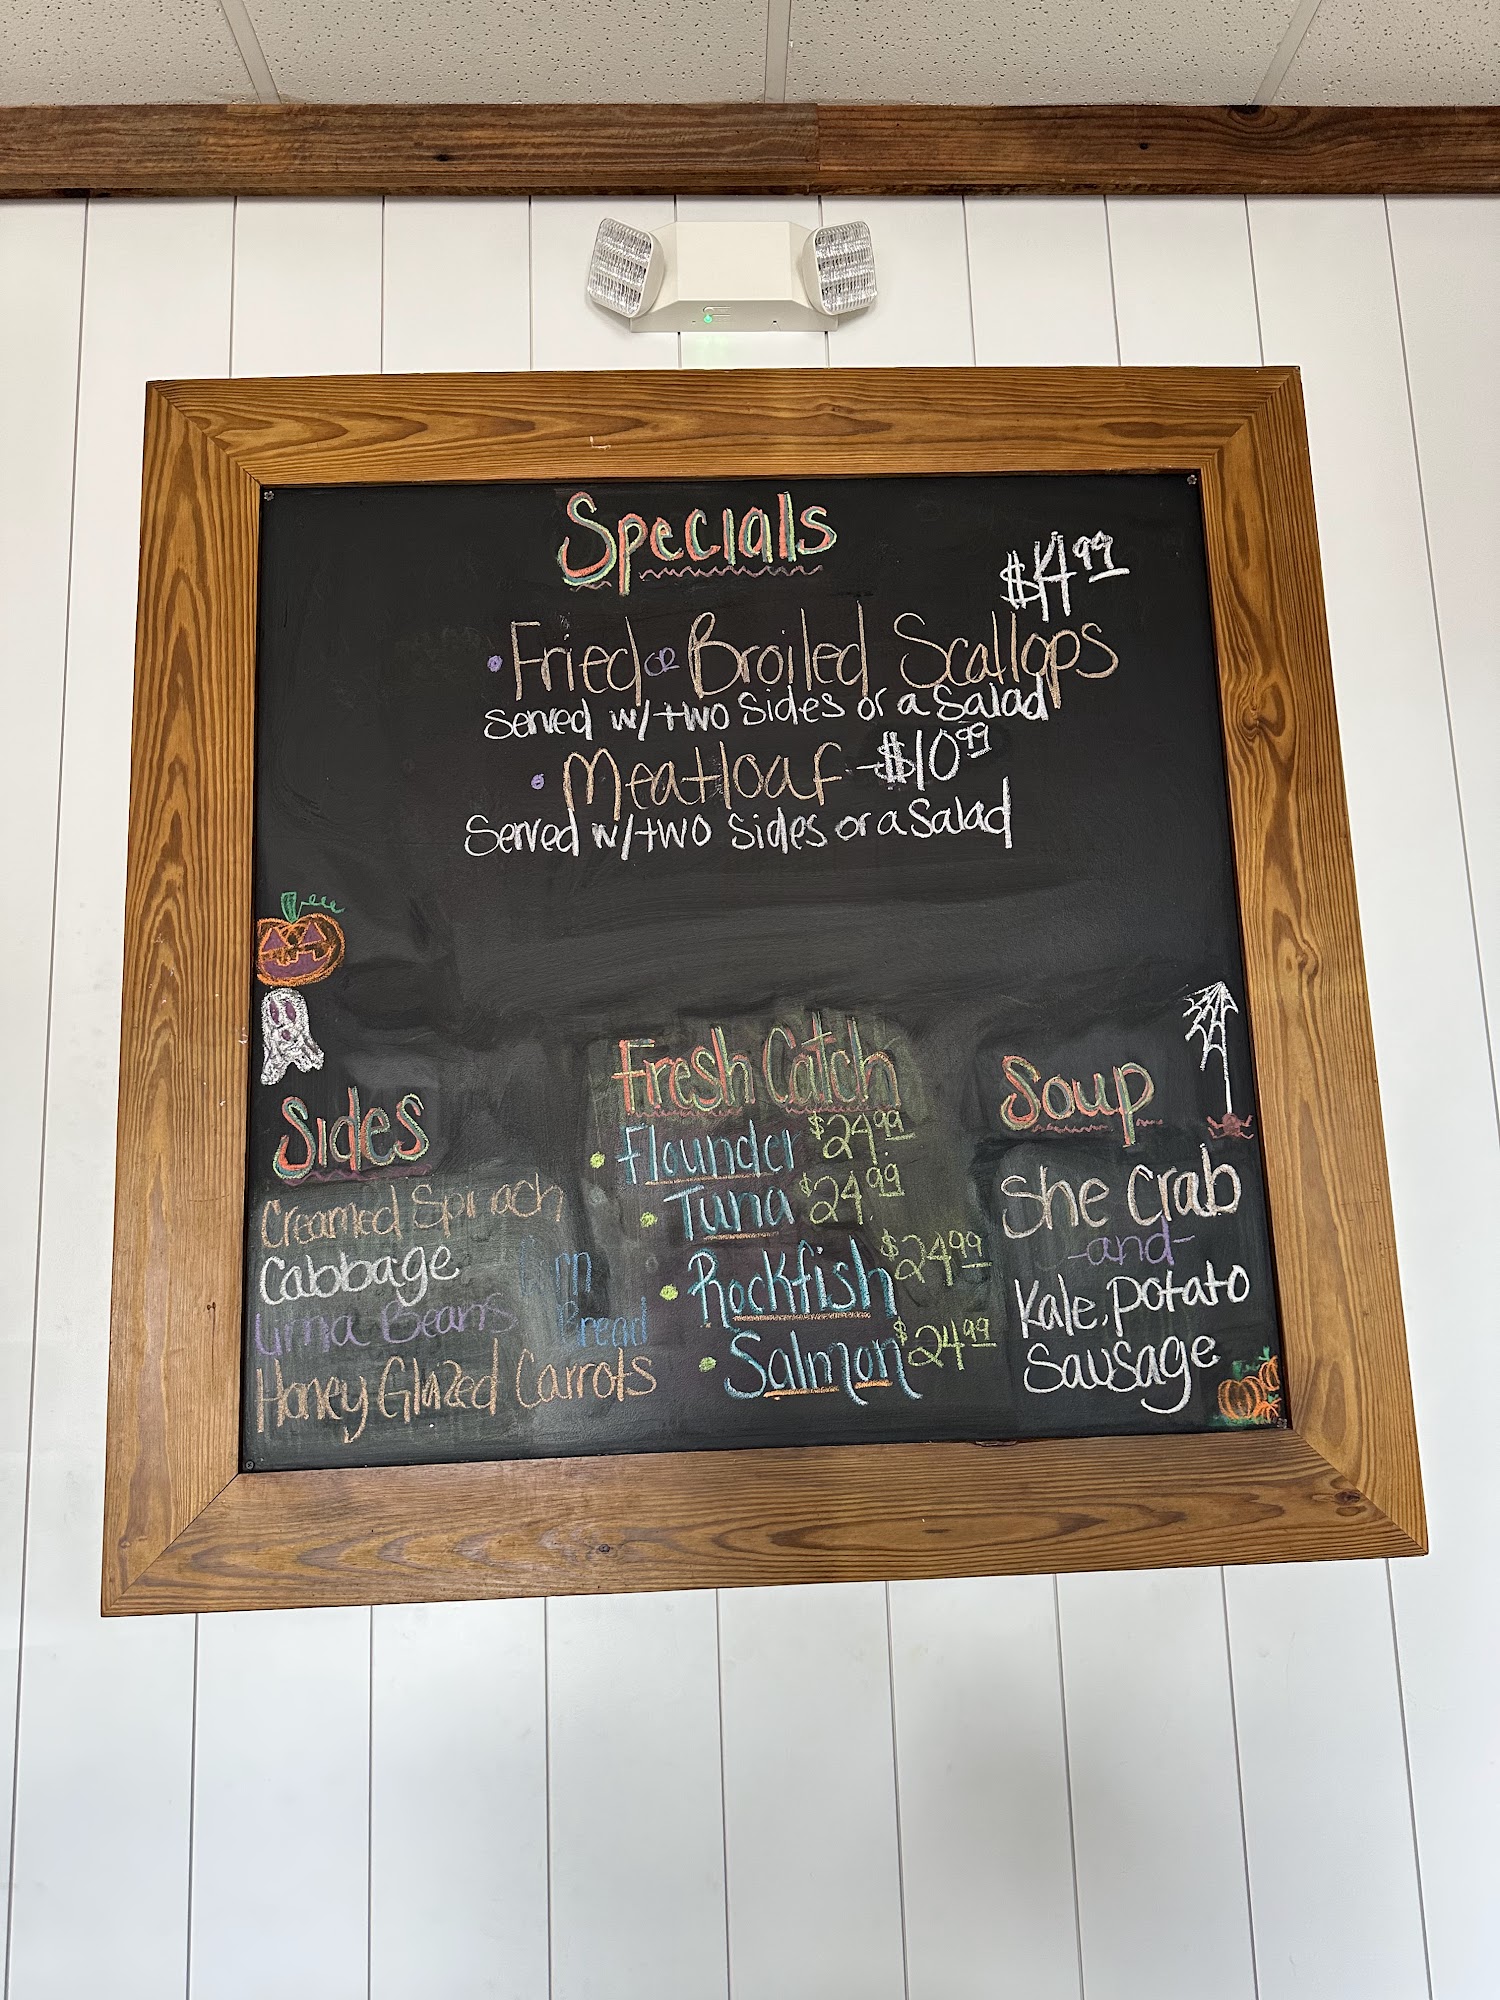 Specials
$14.99
• Fried or Broiled Scallops
Served w/two Sides or a Salad
• Meatloaf - $10.99
Served w/two Sides or a Salad
Sides
Creamed Spinach
Cabbage
Lima Beans
Bread
Honey Glazed Carrots
Fresh Catch
• Flounder $24.99
• Tuna $24.99
• Rockfish $24.99
• Salmon $24.99
Soup
She Crab
-and-
Kale, Potato
Sausage